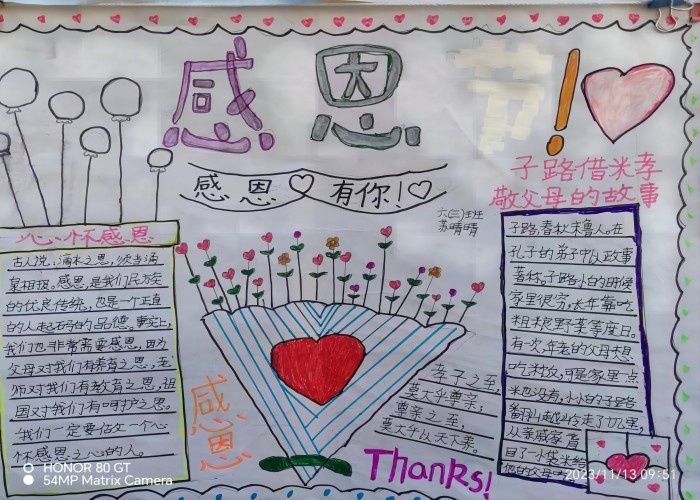 感恩节!
感恩 有你!
六(三)班
苏晴晴
子路借米孝
敬父母的故事
心怀感恩
古人说:滴水之恩,须当涌
泉相报。感恩是我们民族
的优良传统,也是一个正直
的人起码的品德。事实上,
我们也非常需要感恩,因为
父母对我们有养育之恩,老
师对我们有教育之恩,祖
国对我们有呵护之恩。
我们一定要做一个心
怀感恩之心的人。
子路,春秋末鲁人。在
孔子的弟子中以政事
著称。子路小的时候
家里很穷,长年靠吃
粗粮野菜等度日。
有一次,年老的父母想
吃米饭,可是家里一点
米也没有,小小的子路
翻山越岭走了十几里,
从亲戚家背
回了一小袋米给
感恩
孝子之至,
莫大乎尊亲;
尊亲之至,
莫大乎以天下养。
Thanks!
HONOR 80 GT
54MP Matrix Camera
2023/11/13 09:51